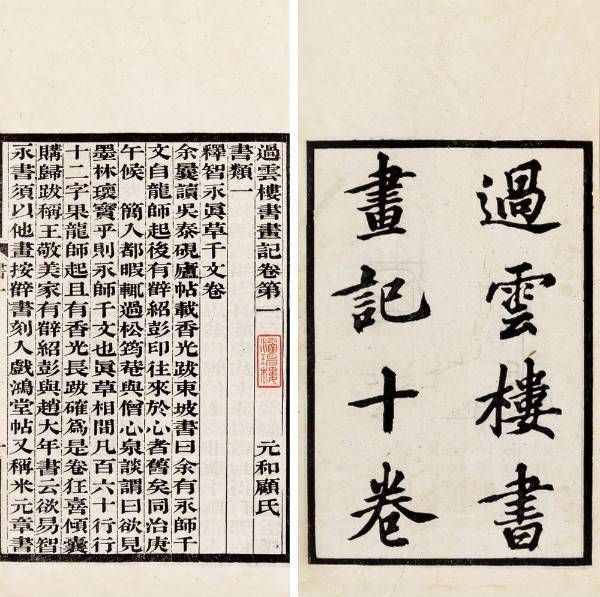 過雲樓書
畫記十卷
過雲樓書畫記卷第一
書類一 元和顧氏
釋智永眞草千文卷
余曩讀吳泰硯廬帖載香光跋東坡書曰余有永師千
文自龍師起後有薛紹彭印往來於心者舊矣同治庚
午候 簡入都暇輒過松筠菴與僧心泉談謂曰欲見
墨林瓌寶乎則永師千文也眞草相間凡百六十行行
十二字果龍師起且有香光長跋確爲是卷狂喜傾囊
購歸跋稱王敬美家有薛紹彭與趙大年書云欲易智
永書須以他畫按薛書刻入戲鴻堂帖又稱米元章書